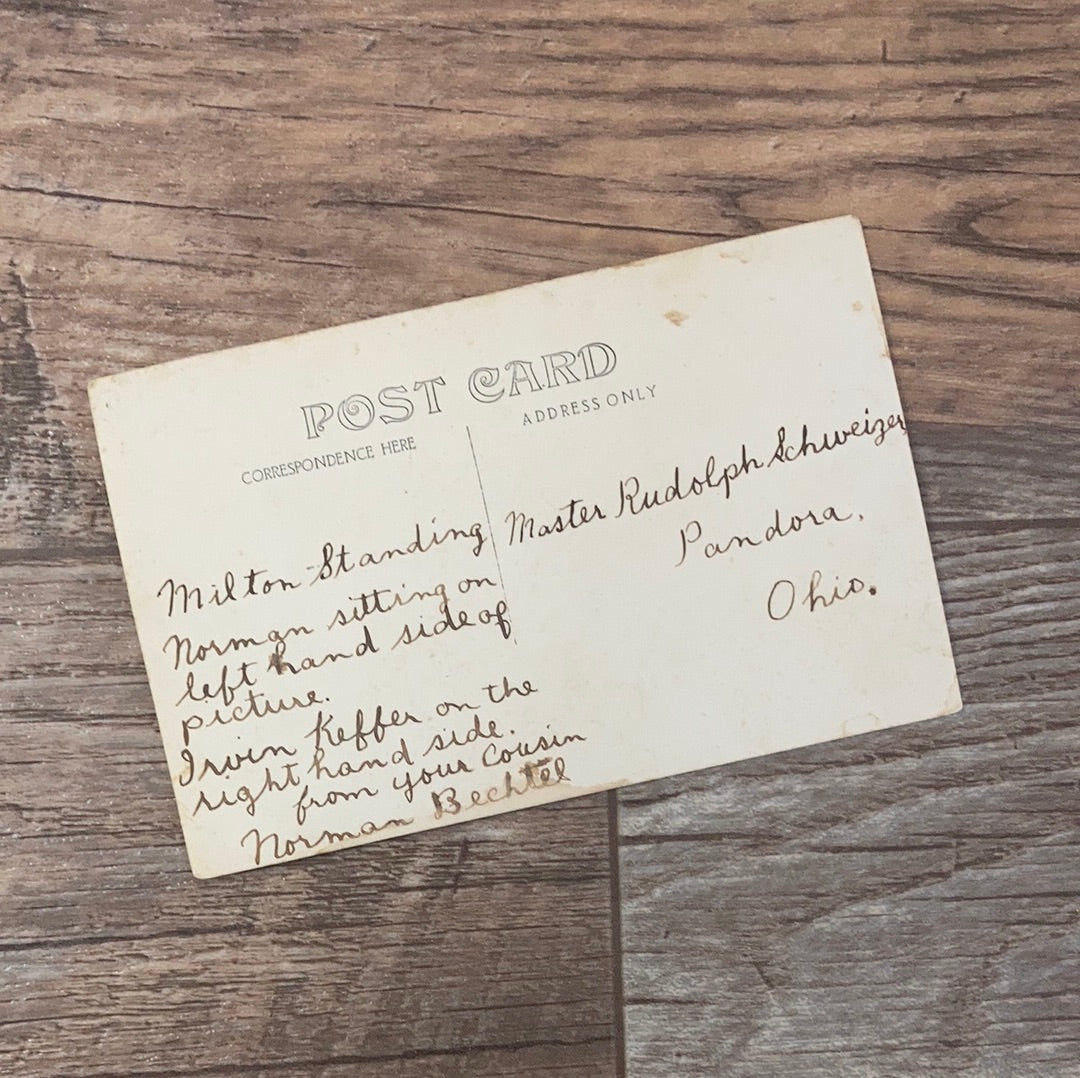 POST CARD
CORRESPONDENCE HERE
ADDRESS ONLY
Milton Standing
Norman sitting on
left hand side of
picture.
Irvin Keffer on the
right hand side.
from your Cousin
Norman Bechtel
Master Rudolph Schweizer,
Pandora,
Ohio.